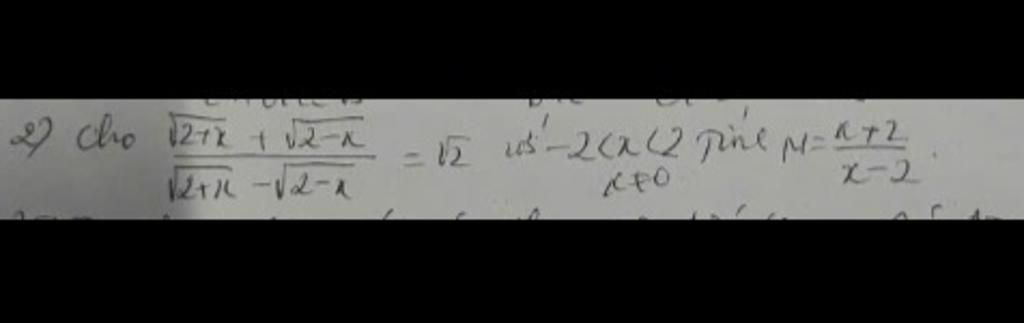 2) Cho \frac{\sqrt{2+x} + \sqrt{2-x}}{\sqrt{2+x} - \sqrt{2-x}} = \sqrt{2} với -2<x<2 Tính M = \frac{x+2}{x-2}.
x≠0